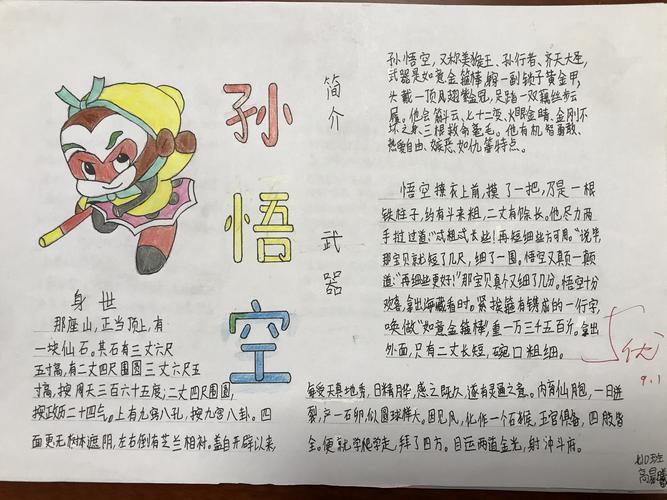 孙
悟
空
简
介
孙悟空，又称美猴王、孙行者、齐天大圣，
武器是如意金箍棒，身穿一副锁子黄金甲，
头戴一顶凤翅紫金冠，足踏一双藕丝步云
履。他会筋斗云、七十二变、火眼金睛、金刚不
坏之身、三根救命毫毛。他有机智勇敢、
热爱自由、嫉恶如仇等特点。
武
器
悟空撩衣上前，摸了一把，乃是一根
铁柱子，约有斗来粗，二丈有馀长。他尽力两
手挝过道："忒粗忒长些！再短细些方可用。"说毕，
那宝贝就短了几尺，细了一围。悟空又颠一颠
道："再细些更好！"那宝贝真个又细了几分。悟空十分
欢喜，拿出海藏看时。紧挨箍有镌成的一行字，
唤做"如意金箍棒"，重一万三千五百斤。拿出
外面，只有二丈长短，碗口粗细。
身 世
那座山，正当顶上，有
一块仙石。其石有三丈六尺
五寸高，有二丈四尺围圆三丈六尺五
寸高，按周天三百六十五度；二丈四尺围圆，
按政历二十四气。上有九窍八孔，按九宫八卦。四
面更无树木遮阴，左右倒有芝兰相衬。盖自开辟以来，
每受天真地秀，日精月华，感之既久，遂有灵通之意。内育仙胞，一日迸
裂，产一石卵，似圆球样大。因见风，化作一个石猴，五官俱备，四肢皆
全。便就学爬学走，拜了四方。目运两道金光，射冲斗府。
优
9.1